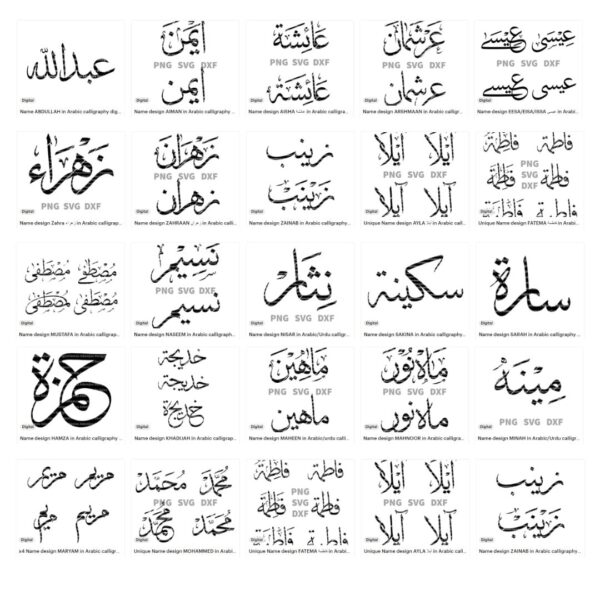 عبدالله
Digital
Name ABDULLAH in Arabic calligraphy dig...
أيمن
PNG SVG DXF
أيمن
Digital
Name design AIMAN in Arabic calligraphy ...
عائشة
PNG SVG DXF
عائشة
Digital
Name design AISHA عائشة in Arabic calligra...
عرشمان
PNG SVG DXF
عرشمان
Digital
Name design ARSHMAAN in Arabic calligr...
عيسى عيسى
PNG SVG DXF
عيسى عيسى
Digital
Name design EESA/EISA/ISSA عيسى in Arabi...
زهراء
PNG SVG DXF
Digital
Name design Zahra زهراء in Arabic calligrap...
زهران
PNG SVG DXF
زهران
Digital
Name design ZAHRAAN زهران in Arabic calli...
زينب
زينب
Digital
Name design ZAINAB in Arabic calligraphy...
آيلا آيلا
PNG SVG DXF
آيلا آيلا
Digital
Unique Name design AYLA آيلا in Arabic calli...
فاطمة فاطمة
PNG
فاطمة SVG فاطمة
DXF
فاطمة فاطمة
Digital
Unique Name design FATEMA فاطمة in Arab...
مصطفى مصطفى
مصطفى مصطفى
Digital
Name design MUSTAFA in Arabic calligrap...
نسيم
PNG SVG DXF
نسيم
Digital
Name design NASEEM in Arabic calligraph...
نثار
PNG SVG DXF
Digital
Name design NISAR in Arabic/Urdu calligr...
سكينة
Digital
Name design SAKINA in Arabic calligraphy...
سارة
Digital
Name design SARAH in Arabic calligraphy...
حمزة
Digital
Name design HAMZA in Arabic calligraphy ...
خديجة
خديجة
خديجة
Digital
Name design KHADIJAH in Arabic calligrap...
ماهين
PNG SVG DXF
ماهين
Digital
Name design MAHEEN in Arabic/urdu calli...
ماہ نور
PNG SVG DXF
ماہ نور
Digital
Name design MAHNOOR in Arabic calligrap...
مينه
PNG SVG DXF
Digital
Name design MINAH in Arabic/Urdu calligr...
مريم مريم
مريم مريم
Digital
x4 Name design MARYAM in Arabic calligr...
محمد محمد
PNG SVG DXF
محمد محمد
Digital
Unique Name design MOHAMMED in Arabi...
فاطمة فاطمة
PNG
فاطمة SVG فاطمة
DXF
فاطمة فاطمة
Digital
Unique Name design FATEMA فاطمة in Arab...
آيلا آيلا
PNG SVG DXF
آيلا آيلا
Digital
Unique Name design AYLA آيلا in Arabic calli...
زينب
زينب
Digital
Name design ZAINAB in Arabic calligraphy...